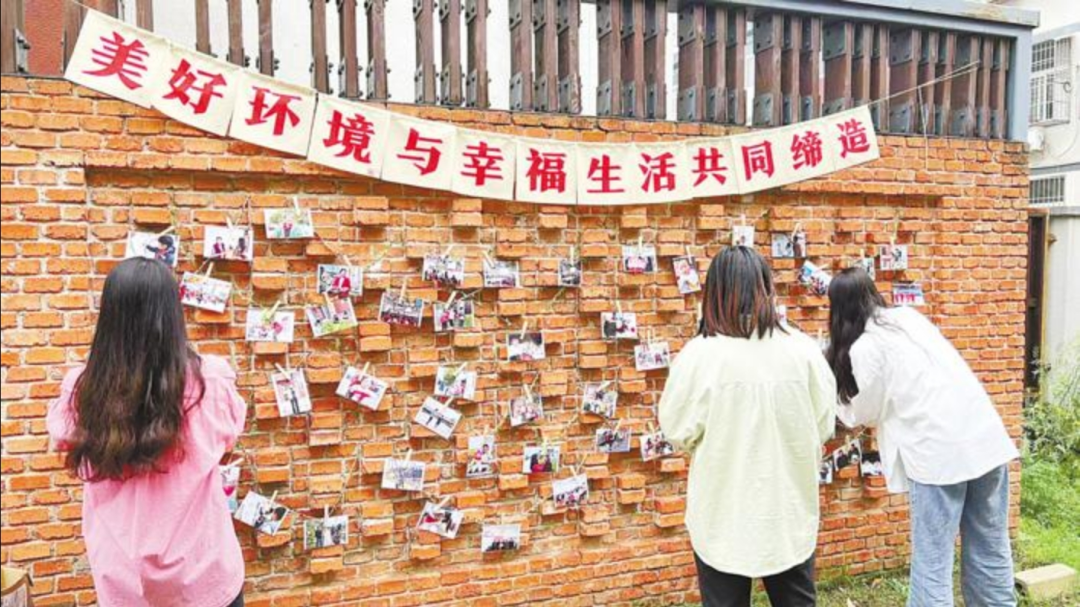 美好环境与幸福生活共同缔造